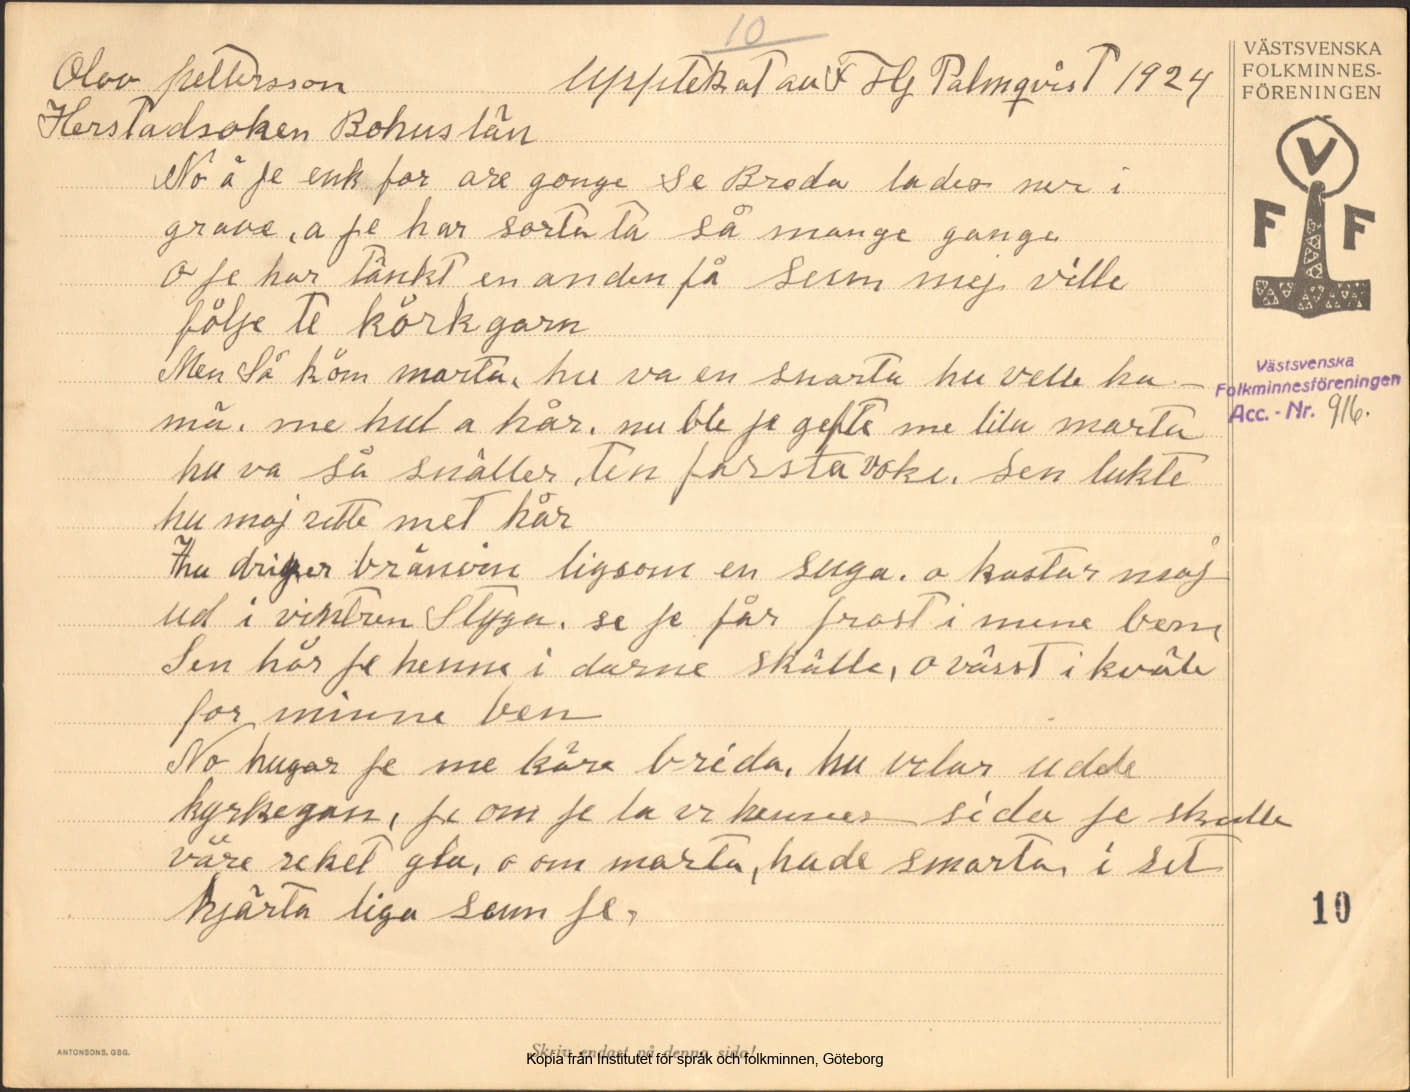 10
Olov pettersson
Upptekat av F Hj Palmqvist 1924
Herstadsoken Bohuslän
No å je enk for are gonge Se Breda lades ner i
grave, a je har sorta ta så mange gange
o je har tänkt en anden få Seum mej ville
følje te körkgarn
Men Så köm marta, hu va en snarta hu velle ha
mä. me hul a hår. nu ble je gefte me lila marta
hu va så snäller, ten farsta voke. Sen lukte
hu maj rette met hår
hu driger bränvin ligsom en suga. o kastar maj
ud i vintren Styga. se je får frost i mine bene
Sen hår je henne i darne skälle, o värst i kväle
for minne ben
No hugar je me kära breda, hu velar udde
kyrkegan, je om je la ve hennes sida je skulle
väre reket gla, o om marta, hade smarta, i set
hjärta liga seum je,
VÄSTSVENSKA
FOLKMINNES-
FÖRENINGEN
V
F F
Västsvenska
Folkminnesföreningen
Acc. - Nr. 916.
10
ANTONSONS, GBG.
Skriv endast på denna sida!
Kopia från Institutet för språk och folkminnen, Göteborg